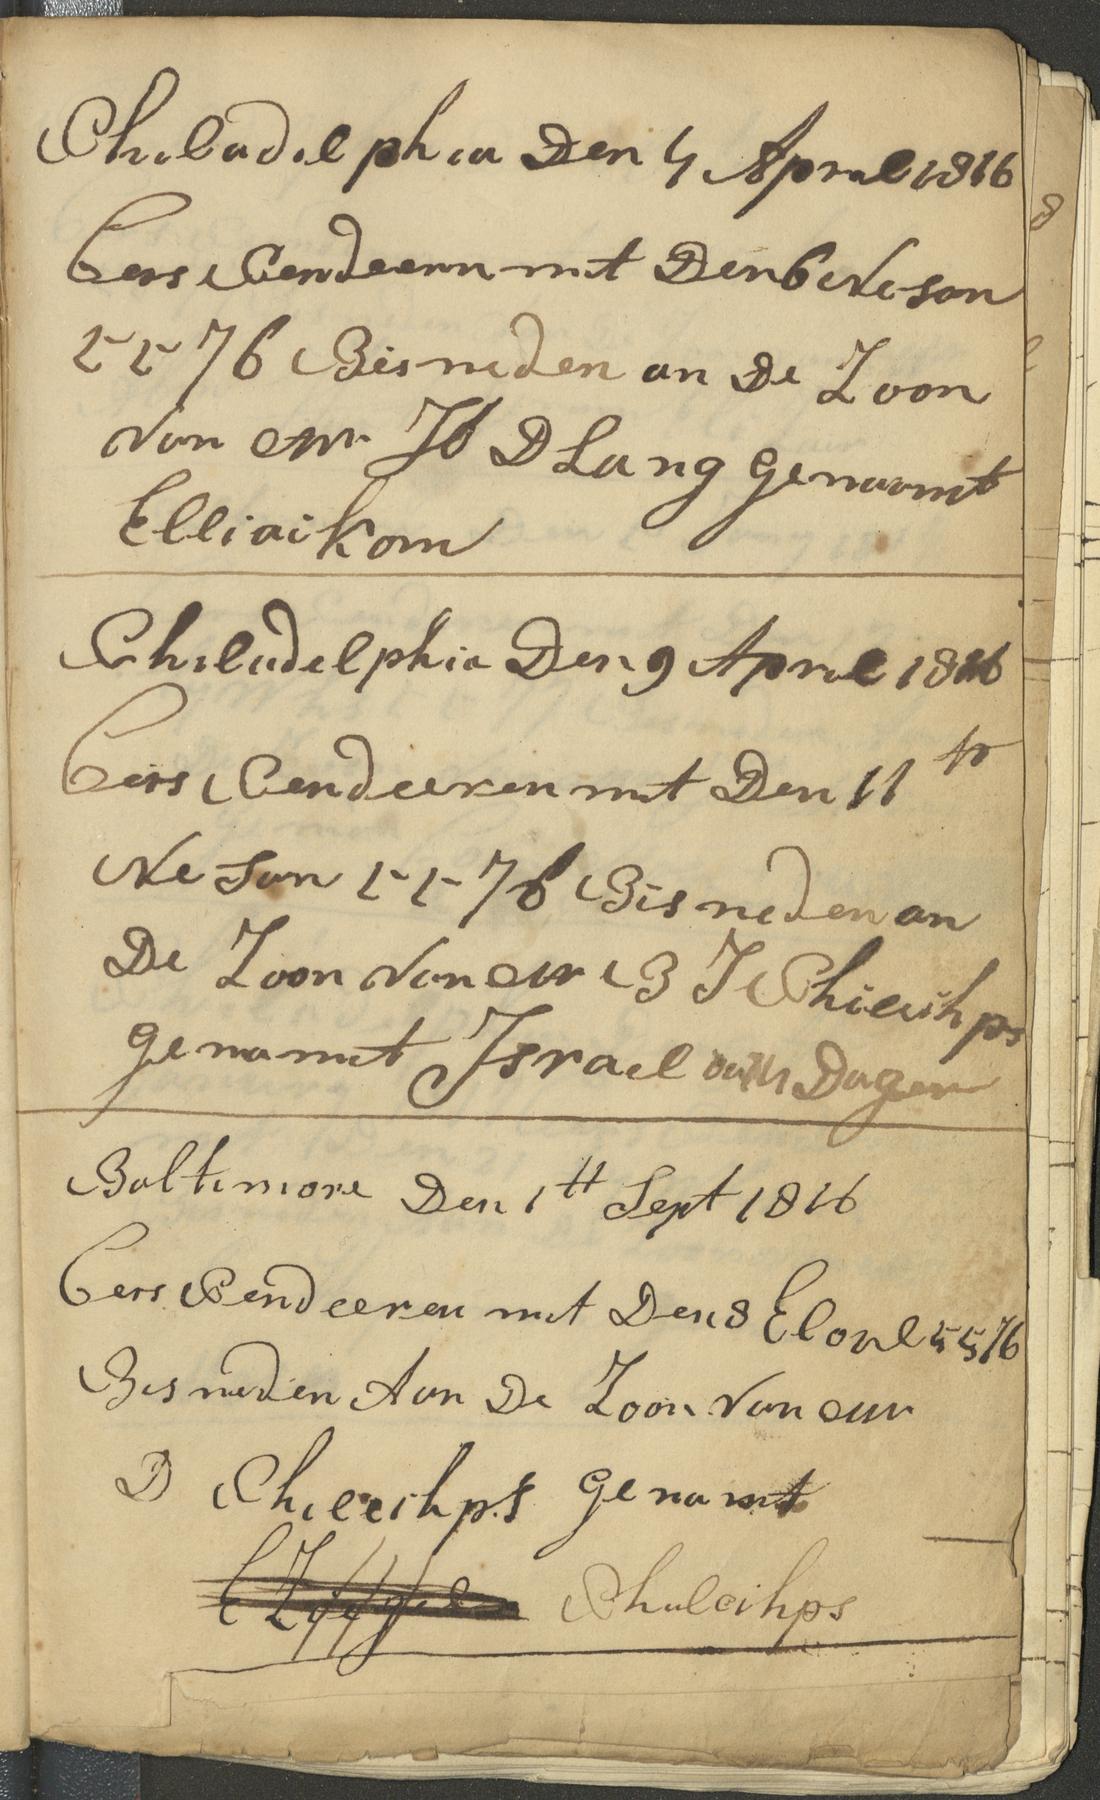 Philadelphia Den 4 April 1816
Cors Pondeern mit Den 6 Ne-san
5576 Bisneden an De Zoon
Van eur Jb D Lang genaamt
Elliaikom
Philadelphia Den 9 April 1816
Cors Pondeeren mit Den 11 tr
Ne San 5576 Bisneden an
De Zoon Van eur B I Phieihps
genamt Israel Dagen
Baltimore Den 1tt Sept 1816
Cors Pondeeren mit Den 8 Eloul 5576
Bisneden Aan De Zoon Van eur
D Phileihps genamt
Phileihps